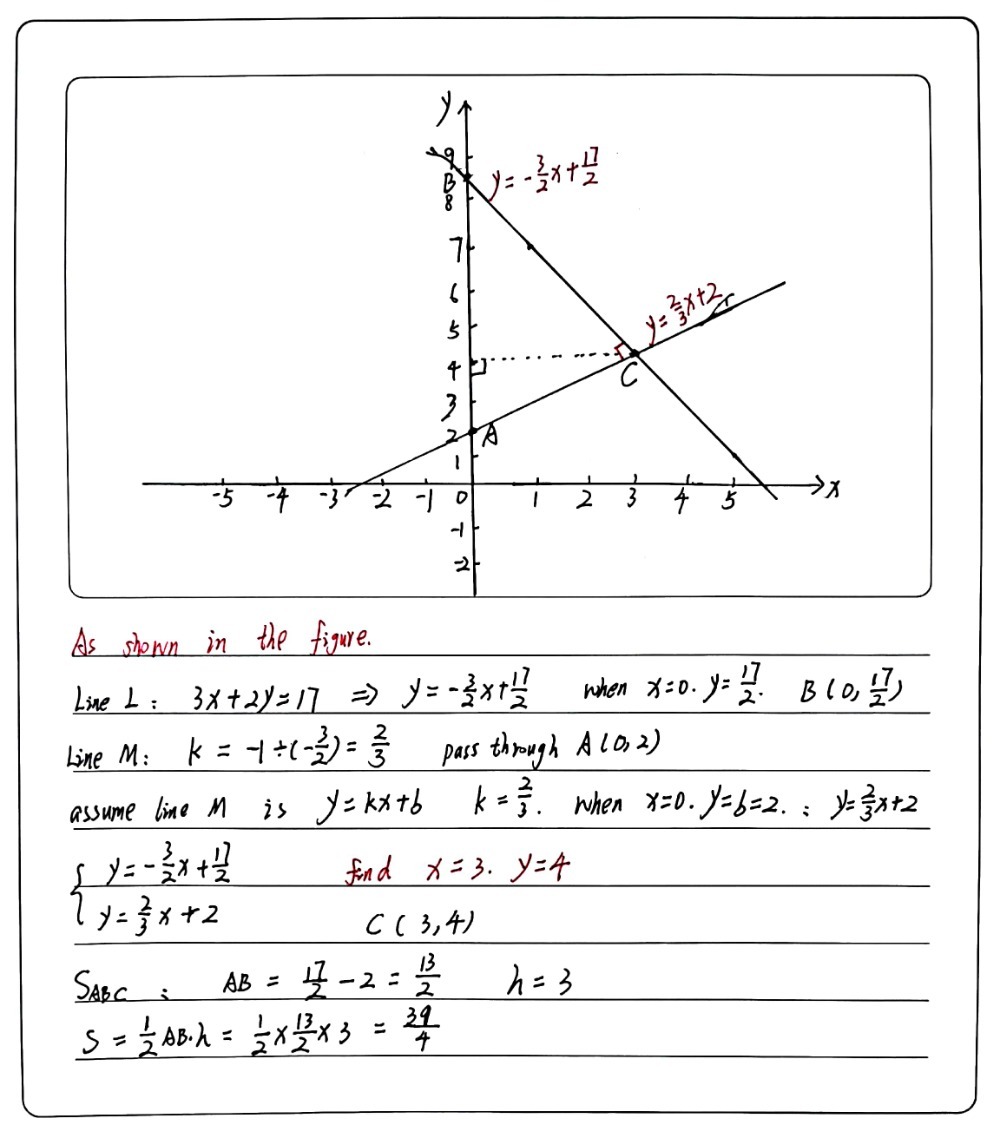 y
9
B
y=-3/2x+17/2
8
7
6
y=2/3x+2
5
4
C
3
2 A
1
-5 -4 -3 -2 -1 0 1 2 3 4 5 x
-1
-2
As shown in the figure.
Line L: 3x+2y=17 => y=-3/2x+17/2 when x=0. y=17/2. B(0,17/2)
Line M: k = -1÷(-3/2)=2/3 pass through A(0,2)
assume line M is y=kx+b k=2/3. when x=0. y=b=2. : y=2/3x+2
{ y=-3/2x+17/2 find x=3. y=4
y=2/3x+2 C(3,4)
SABC : AB = 17/2-2 = 13/2 h=3
S = 1/2AB·h = 1/2×13/2×3 = 39/4